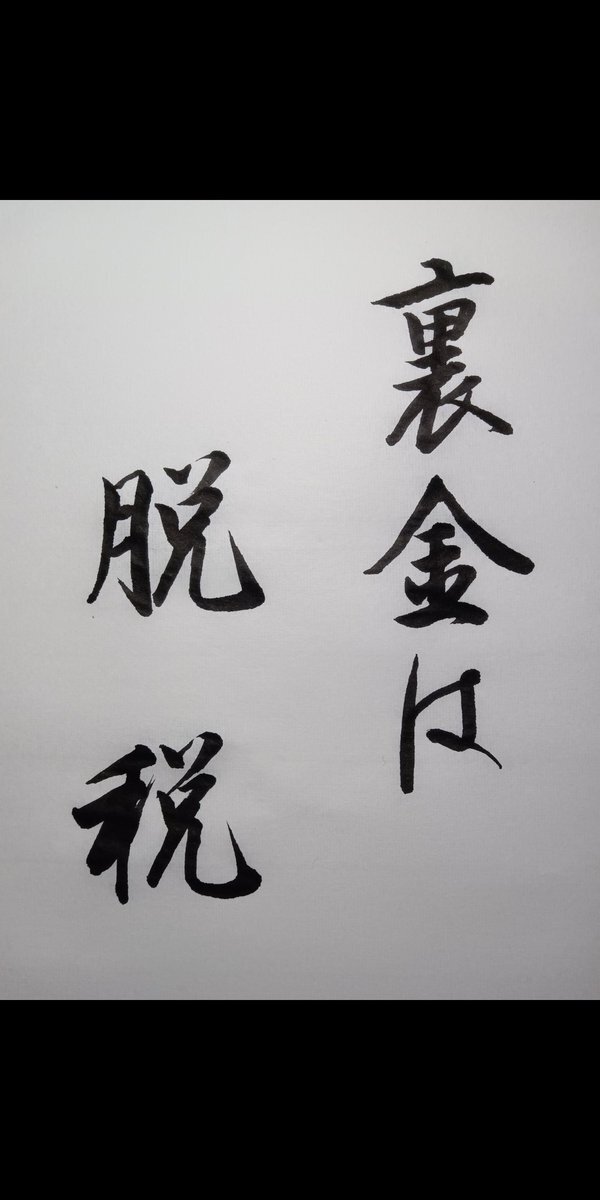 裏金は
脱税